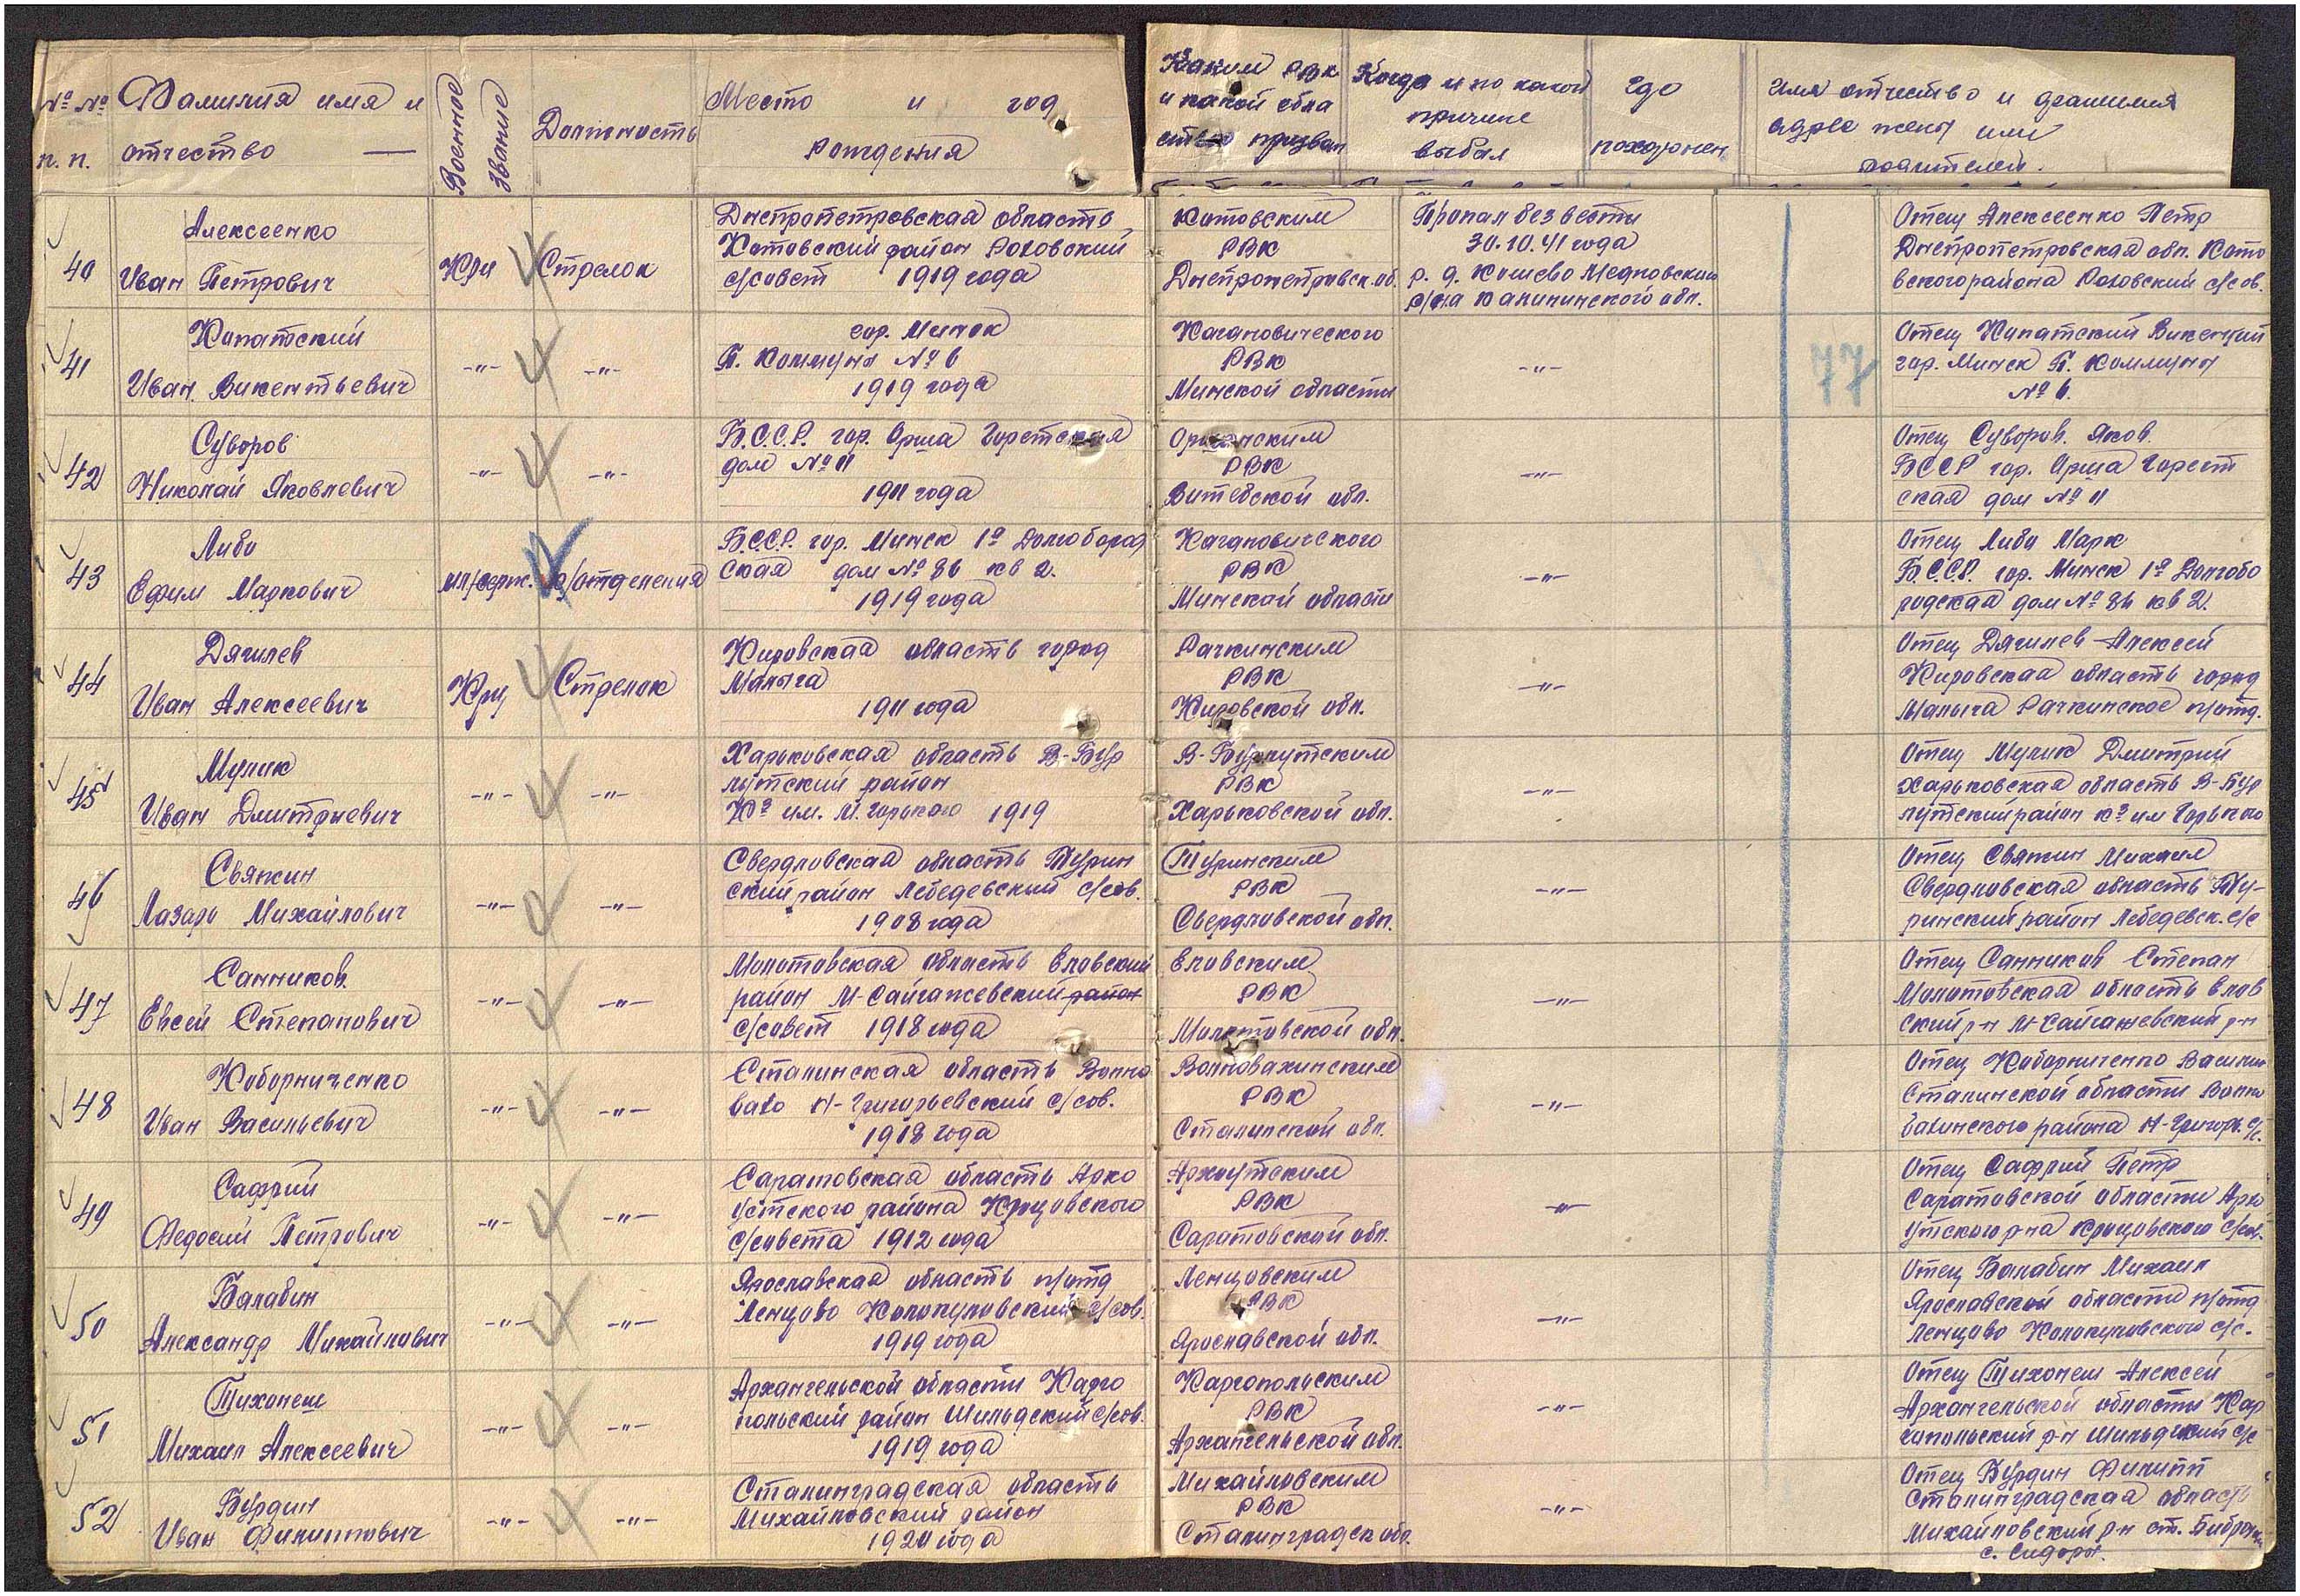 № №
п. п.
Фамилия имя и
отчество —
Военное
звание
Должность
Место и год
рождения
Каким РВК
и какой обла
стью призван
Когда и по какой
причине
выбыл
где
похоронен
Имя отчество и фамилия
адрес жены или
родителей.
40
Алексеенко
Иван Петрович
Кр-ц
Стрелок
Днепропетровская область
Котовский район Роховский
с/совет 1919 года
Котовским
РВК
Днепропетровск. об.
Пропал без вести
30.10.41 года
р. д. Кошево Медновский
р/на Калининского обл.
Отец Алексеенко Петр
Днепропетровская обл. Кото
вского района Роховский с/сов.
41
Копатский
Иван Викентьевич
-"-
-"-
гор. Минск
П. Коммуны № 6
1919 года
Кагановического
РВК
Минской области
-"-
77
Отец Копатский Викентий
гор. Минск П. Коммуны
№ 6.
42
Суворов
Николай Яковлевич
-"-
-"-
Б.С.С.Р. гор. Орша Горетская
дом № 11
1911 года
Оршанским
РВК
Витебской обл.
-"-
Отец Суворов. Яков.
БССР гор. Орша Горет
ская дом № 11
43
Либо
Ефим Маркович
мл/серж.
к/отделения
Б.С.С.Р. гор. Минск 1я Долгоброд
ская дом № 86 кв 2.
1919 года
Кагановического
РВК
Минской области
-"-
Отец Либо Марк
Б.С.С.Р. гор. Минск 1я Долгобо
родская дом № 86 кв 2.
44
Дягилев
Иван Алексеевич
Крц
Стрелок
Кировская область город
Малыга
1911 года
Рачкинским
РВК
Кировской обл.
-"-
Отец Дягилев Алексей
Кировская область город
Малыга Рачкинское п/отд.
45
Мулик
Иван Дмитриевич
-"-
-"-
Харьковская область В-Бур
лутский район
Кз им. М. Горького 1919
В-Бурлутским
РВК
Харьковской обл.
-"-
Отец Мулик Дмитрий
Харьковская область В-Бур
лутский район кз им Горького
46
Свяжин
Лазарь Михайлович
-"-
-"-
Свердловская область Турин
ский район Лебедевский с/сов.
1908 года
Туринским
РВК
Свердловской обл.
-"-
Отец Свяжин Михаил
Свердловская область Ту-
ринский район Лебедевск. с/с
47
Санников
Евсей Степанович
-"-
-"-
Молотовская область Еловский
район М-Сайгажевский район
с/совет 1918 года
Еловским
РВК
Молотовской обл.
-"-
Отец Санников Степан
Молотовская область Елов
ский р-н М-Сайгажевский р-н
48
Коборниченко
Иван Васильевич
-"-
-"-
Сталинская область Волно
вахо Н-Григорьевский с/сов.
1918 года
Волновахинским
РВК
Сталинской обл.
-"-
Отец Коборниченко Василий
Сталинской области Волно
вахинского района Н-Григорь. с/с.
49
Сафрий
Федосий Петрович
-"-
-"-
Саратовская область Арко
утского района Крцовского
с/совета 1912 года
Аркоутским
РВК
Саратовской обл.
-"-
Отец Сафрий Петр
Саратовской области Арко
утского р-на Крцовского с/сов.
50
Балабин
Александр Михайлович
-"-
-"-
Ярославская область п/отд
Ленцово Колокуловский с/сов.
1919 года
Ленцовским
РВК
Ярославской обл.
-"-
Отец Балабин Михаил
Ярославской области п/отд
Ленцово Колокуловского с/с.
51
Тихонеш
Михаил Алексеевич
-"-
-"-
Архангельской области Карго
польский район Шильдский с/сов.
1919 года
Каргопольским
РВК
Архангельской обл.
-"-
Отец Тихонеш Алексей
Архангельской области Кар
гопольский р-н Шильдский с/с
52
Бурдин
Иван Филиппович
-"-
-"-
Сталинградская область
Михайловский район
1920 года
Михайловским
РВК
Сталинградск обл.
-"-
Отец Бурдин Филипп
Сталинградская область
Михайловский р-н ст.
с. Сидоры.